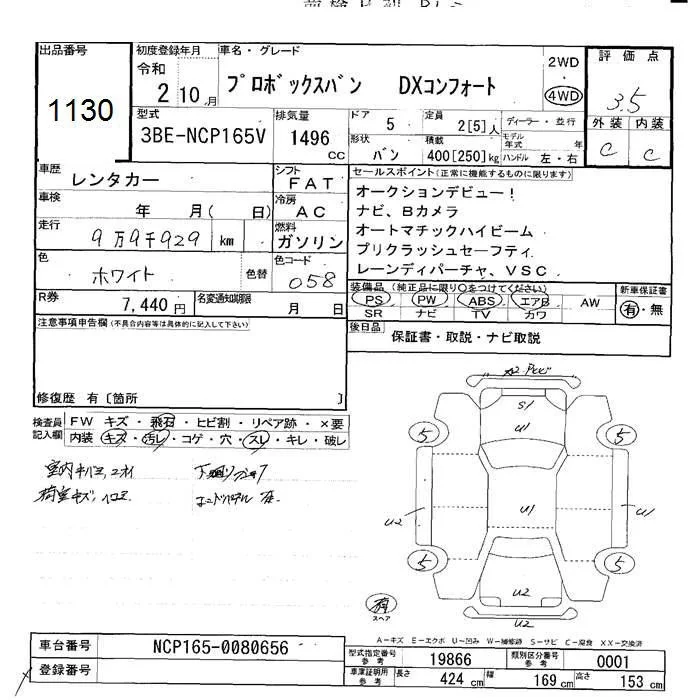 出品番号
1130
初度登録年月
令和
2 10 月
車名・グレード
プロボックスバン DXコンフォート
2WD
4WD
評価点
3.5
外装 内装
C C
型式
3BE-NCP165V
排気量
1496
CC
ドア 5
形状 バン
定員 2[5]人
積載 400[250]kg
ディーラー・並行
モデル年式 年
ハンドル 左・右
車歴 レンタカー
シフト FAT
車検 年 月( 日)
冷房 AC
走行 9万9千929 km
燃料 ガソリン
色 ホワイト 色替
色コード 058
R券 7,440円
名変通知期限 月 日
セールスポイント(正常に機能するものに限ります)
オークションデビュー!
ナビ、Bカメラ
オートマチックハイビーム
プリクラッシュセーフティ
レーンディパーチャ、VSC
装備品(純正品に限り○をつけてください)
PS PW ABS エアB AW
SR ナビ TV カワ
新車保証書
有・無
後日品 保証書・取説・ナビ取説
注意事項申告欄(不具合内容等は具体的に記入して下さい)
修復歴 有〔箇所 〕
検査員記入欄
FW キズ・飛石・ヒビ割・リペア跡・×要
内装 キズ・汚レ・コゲ・穴・スレ・キレ・破レ
室内キバミ、ニオイ
荷室キズ、ヘコミ
A2
S1
U1
5
5
U2
U1
U1
5
5
U2
U2
有
スペア
A-キズ E-エクボ U-凹み W-補修跡 S-サビ C-腐食 XX-交換済
車台番号 NCP165-0080656
登録番号
型式指定番号 参考 19866
類別区分番号 参考 0001
車庫証明用 参考 長さ 424 cm 幅 169 cm 高さ 153 cm